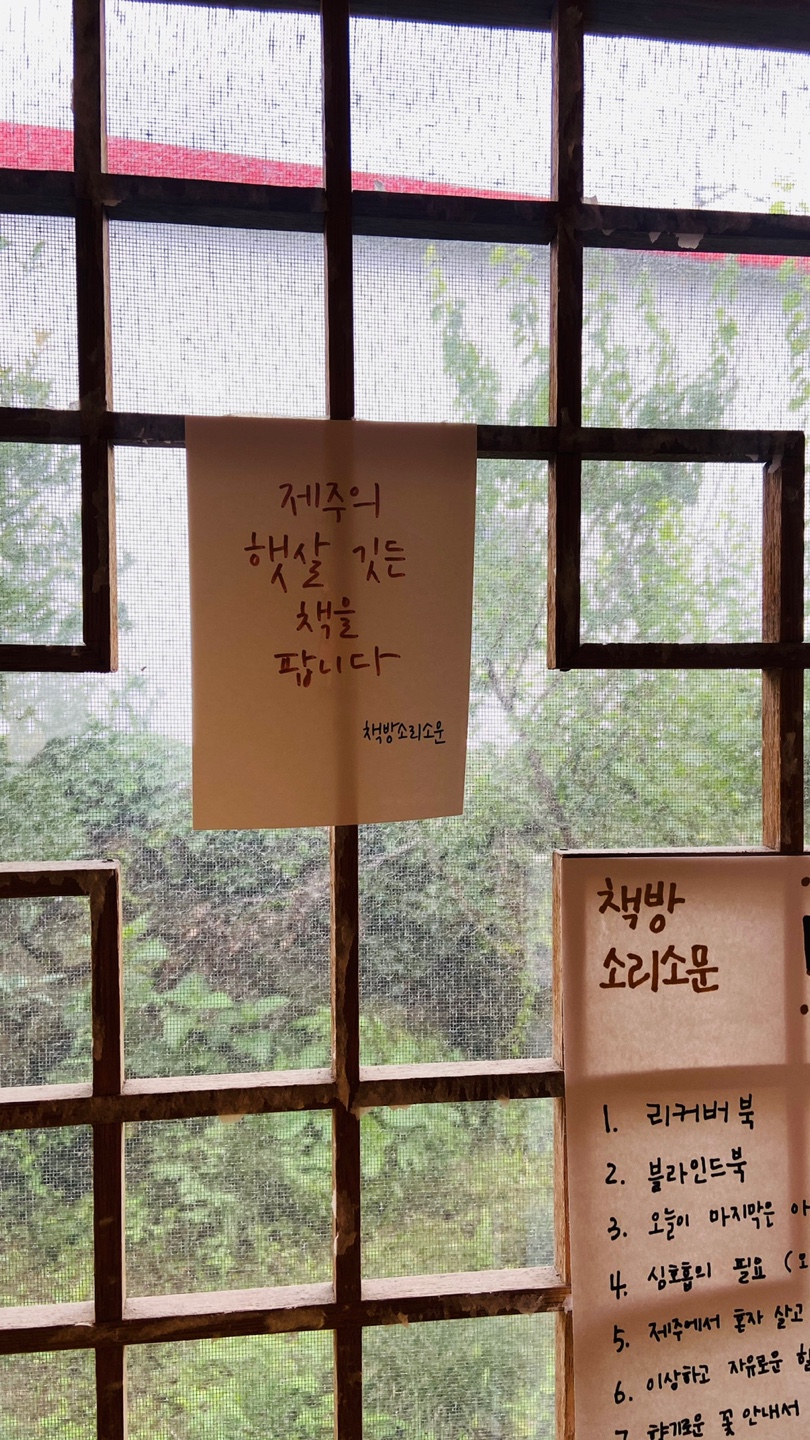 제주의
햇살 깃든
책을
팝니다
책방소리소문
책방
소리소문
1. 리커버 북
2. 블라인드북
3. 오늘이 마지막은
4. 심호흡의 필요
5. 제주에서 혼자 살고
6. 이상하고 자유로운
7. 향기로운 꽃 안내서